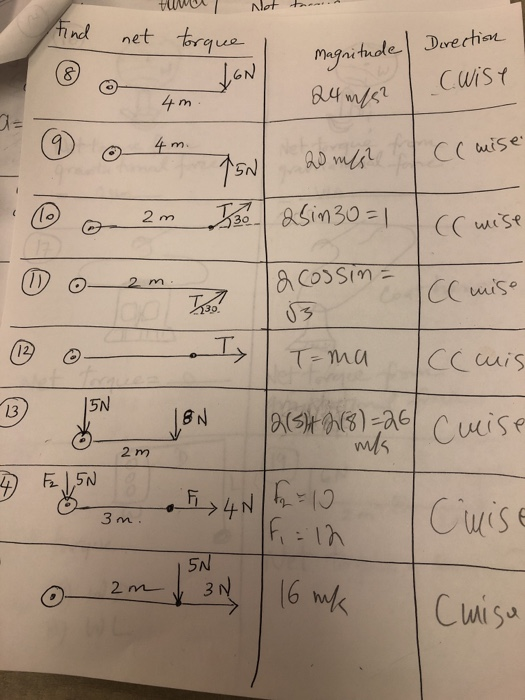 Not
Find net torque
Magnitude Direction
8 6N 4m. 24 m/s² C.wise
a=
9 4m. 5N 20 m/s² CC wise
10 2m T 30 2sin30=1 CC wise
11 2m. T 30 2cossin= CC wise
√3
12 T T=ma CC wis
13 5N 8N 2m 2(5)+2(8)=26 Cwise
m/s
4 F₂ 5N 3m. F₁ 4N F₂=10 Cwise
F₁=12
5N
2m 3N 16 Cwise